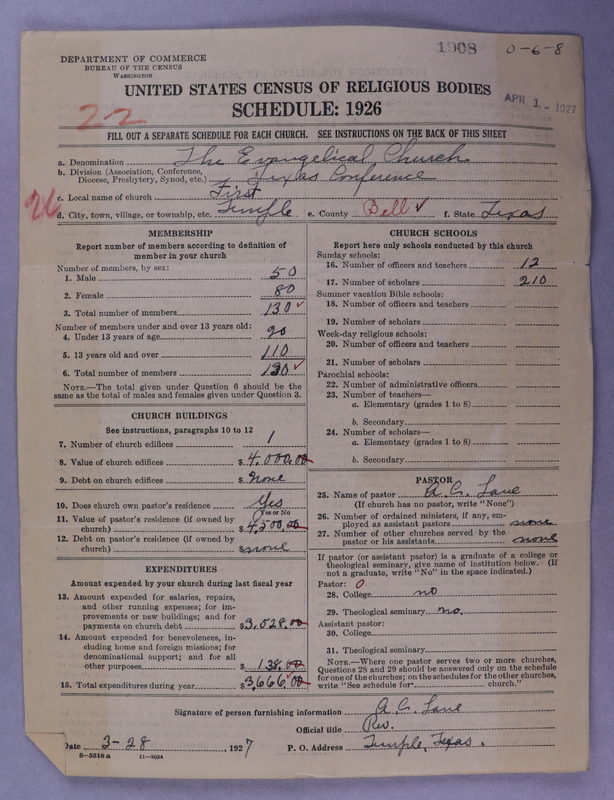 1908 0-6-8
DEPARTMENT OF COMMERCE
BUREAU OF THE CENSUS
WASHINGTON
UNITED STATES CENSUS OF RELIGIOUS BODIES
SCHEDULE: 1926
APR 1 - 1927
22
FILL OUT A SEPARATE SCHEDULE FOR EACH CHURCH. SEE INSTRUCTIONS ON THE BACK OF THIS SHEET
a. Denomination The Evangelical Church
b. Division (Association, Conference,
Diocese, Presbytery, Synod, etc.) Texas Conference
c. Local name of church First
26
d. City, town, village, or township, etc. Temple e. County Bell ✓ f. State Texas
MEMBERSHIP
Report number of members according to definition of
member in your church
Number of members, by sex:
1. Male 50
2. Female 80
3. Total number of members 130 ✓
Number of members under and over 13 years old:
4. Under 13 years of age 20
5. 13 years old and over 110
6. Total number of members 130 ✓
NOTE.—The total given under Question 6 should be
same as the total of males and females given under Question 3.
CHURCH BUILDINGS
See instructions, paragraphs 10 to 12
7. Number of church edifices 1
8. Value of church edifices $ 4,000.00
9. Debt on church edifices $ none
10. Does church own pastor's residence Yes
Yes or No
11. Value of pastor's residence (if owned by
church) $ 4,500.00
12. Debt on pastor's residence (if owned by
church) $ none
EXPENDITURES
Amount expended by your church during last fiscal year
13. Amount expended for salaries, repairs,
and other running expenses; for im-
provements or new buildings; and for
payments on church debt $ 3,528.00
14. Amount expended for benevolences, in-
cluding home and foreign missions; for
denominational support; and for all
other purposes $ 138.00
15. Total expenditures during year $ 3,666.00
CHURCH SCHOOLS
Report here only schools conducted by this church
Sunday schools:
16. Number of officers and teachers 12
17. Number of scholars 210
Summer vacation Bible schools:
18. Number of officers and teachers
19. Number of scholars
Week-day religious schools:
20. Number of officers and teachers
21. Number of scholars
Parochial schools:
22. Number of administrative officers
23. Number of teachers—
a. Elementary (grades 1 to 8)
b. Secondary
24. Number of scholars—
a. Elementary (grades 1 to 8)
b. Secondary
PASTOR
25. Name of pastor A. C. Lane
(If church has no pastor, write "None")
26. Number of ordained ministers, if any, em-
ployed as assistant pastors none
27. Number of other churches served by the
pastor or his assistants none
If pastor (or assistant pastor) is a graduate of a college or
theological seminary, give name of institution below. (If
not a graduate, write "No" in the space indicated.)
Pastor: 0
28. College no
29. Theological seminary no.
Assistant pastor:
30. College
31. Theological seminary
NOTE.—Where one pastor serves two or more churches,
Questions 28 and 29 should be answered only on the schedule
for one of the churches; on the schedules for the other churches,
write "See schedule for church."
Signature of person furnishing information A. C. Lane
Official title Rev.
Date 3-28, 1927 P. O. Address Temple, Texas.
8-5518 a 11-9054